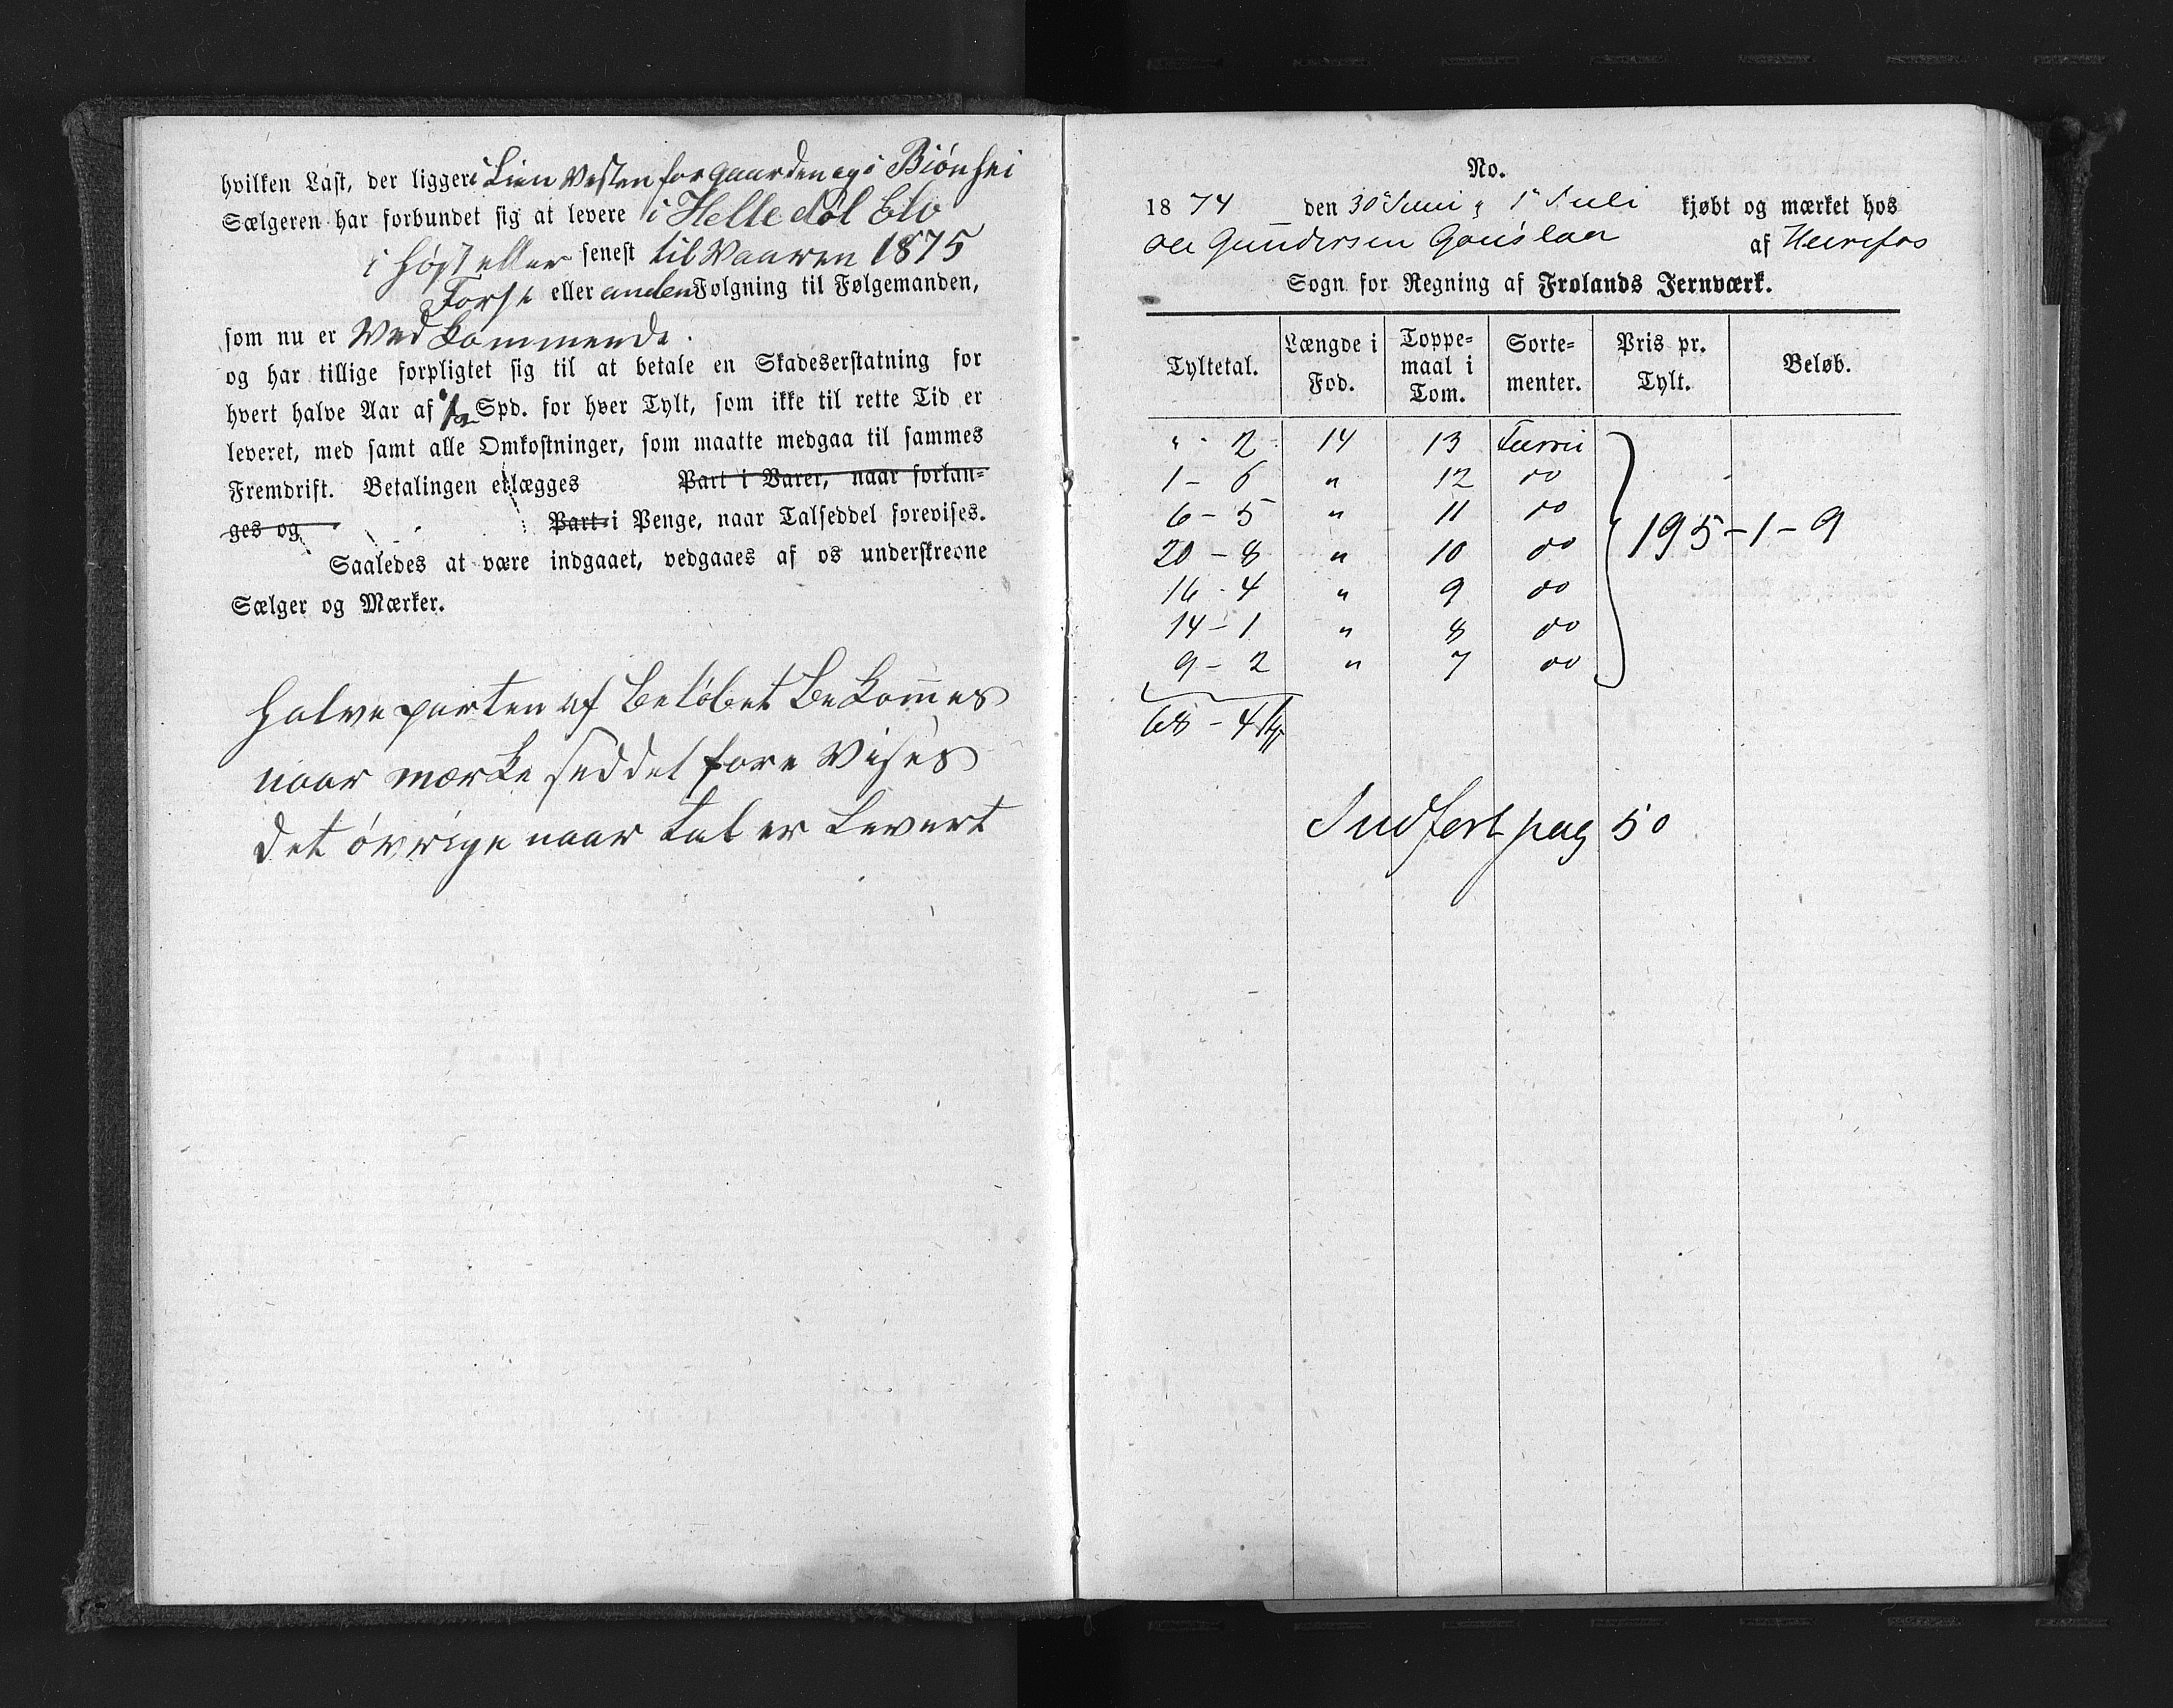 hvilken Last, der ligger i Lien Vesten for gaarden og i Biønhei
Sælgeren har forbundet sig at levere i Helle døl Elv
i Høst eller senest til Vaaren 1875
Forse eller anden Følgning til Følgemanden,
som nu er Vedkommende.
og har tillige forpligtet sig til at betale en Skadeserstatning for
hvert halve Aar af 1/2 Spd. for hver Tylt, som ikke til rette Tid er
leveret, med samt alle Omkostninger, som maatte medgaa til sammes
Fremdrift. Betalingen erlægges Part i Varer, naar forlan-
ges og Part i Penge, naar Talseddel forevises.
Saaledes at være indgaaet, vedgaaes af os underskrevne
Sælger og Mærker.
Halve parten af Beløbet Bekom̅es
naar mærke seddel fore Vises
det øvrige naar tal er Levert
No.
1874 den 30te Juni & 1te Juli kjøbt og mærket hos
Ole Gundersen af Heirefos
Sogn for Regning af Frolands Jernværk.
Tyltetal. Længde i Fod. Toppe-maal i Tom. Sorte-menter. Pris pr. Tylt. Beløb.
" - 2 14 13 Furru
1 - 6 " 12 do
6 - 5 " 11 do
20 - 8 " 10 do 195 - 1 - 9
16 - 4 " 9 do
14 - 1 " 8 do
9 - 2 " 7 do
68 - 4
Indført pag 50